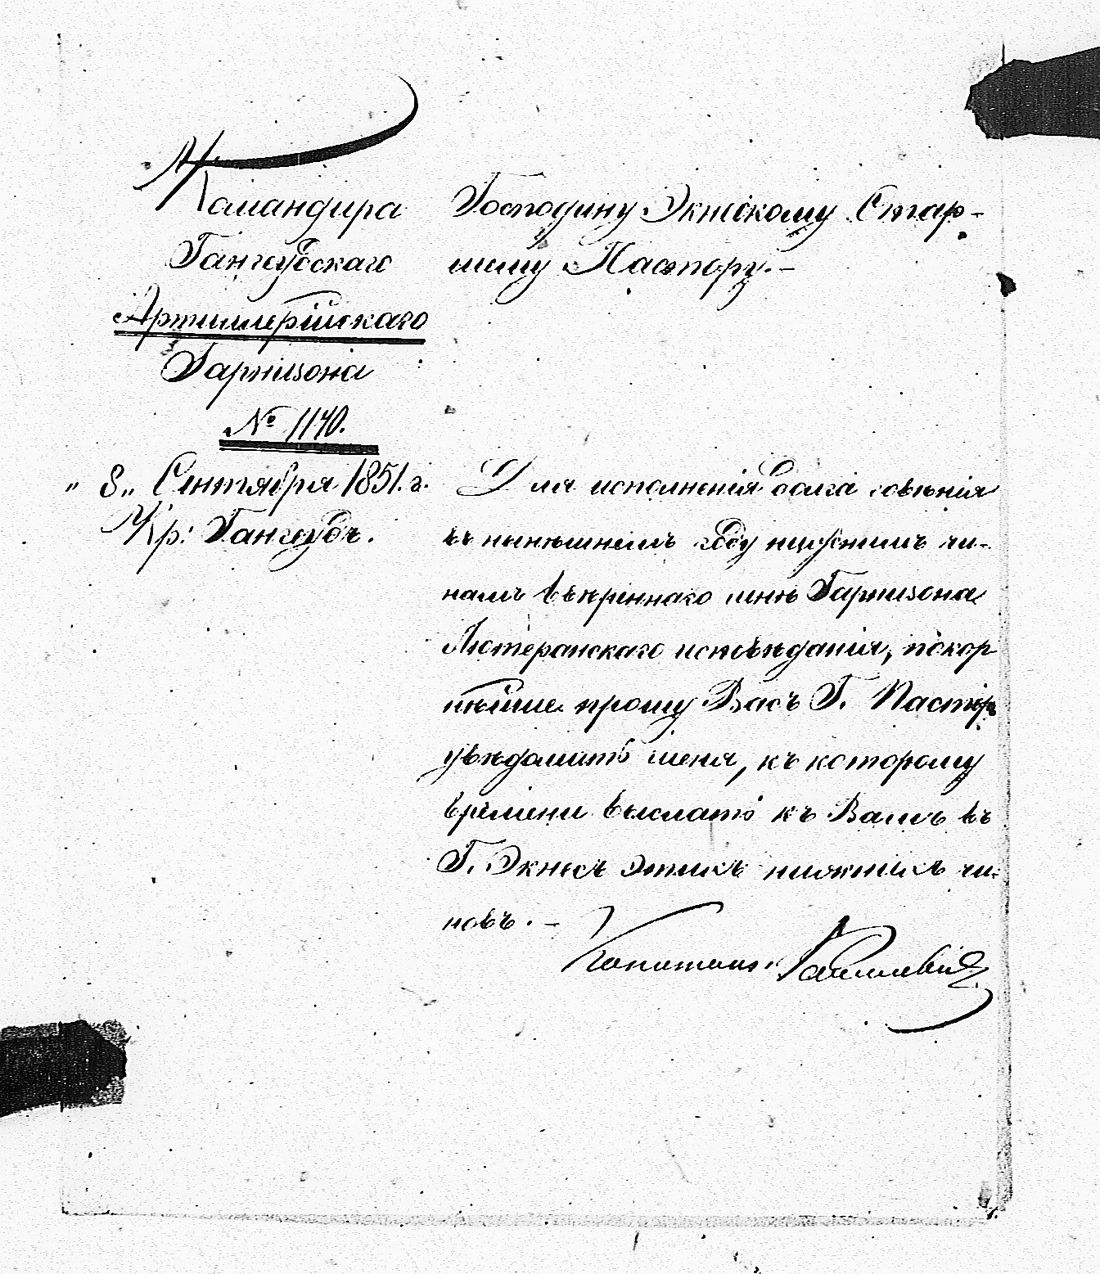 М.
Командира
Гангеудскаго
Артиллерійскаго
Гарнизона
№ 1140.
„ 8 „ Сентября 1851. г.
Кр: Гангеудъ.
Господину Экнескому Стар-
шему Пастору. -
Для исполненія долга говѣнія
въ нынѣшнемъ году нижнимъ чи-
намъ ввѣреннаго мнѣ Гарнизона
Лютеранскаго исповѣданія, покор
нѣйше прошу Васъ Г. Пасторъ
увѣдомить меня, къ которому
времени выслать къ Вамъ въ
Г. Экнесъ этихъ нижнихъ чи-
новъ. -
Капитанъ